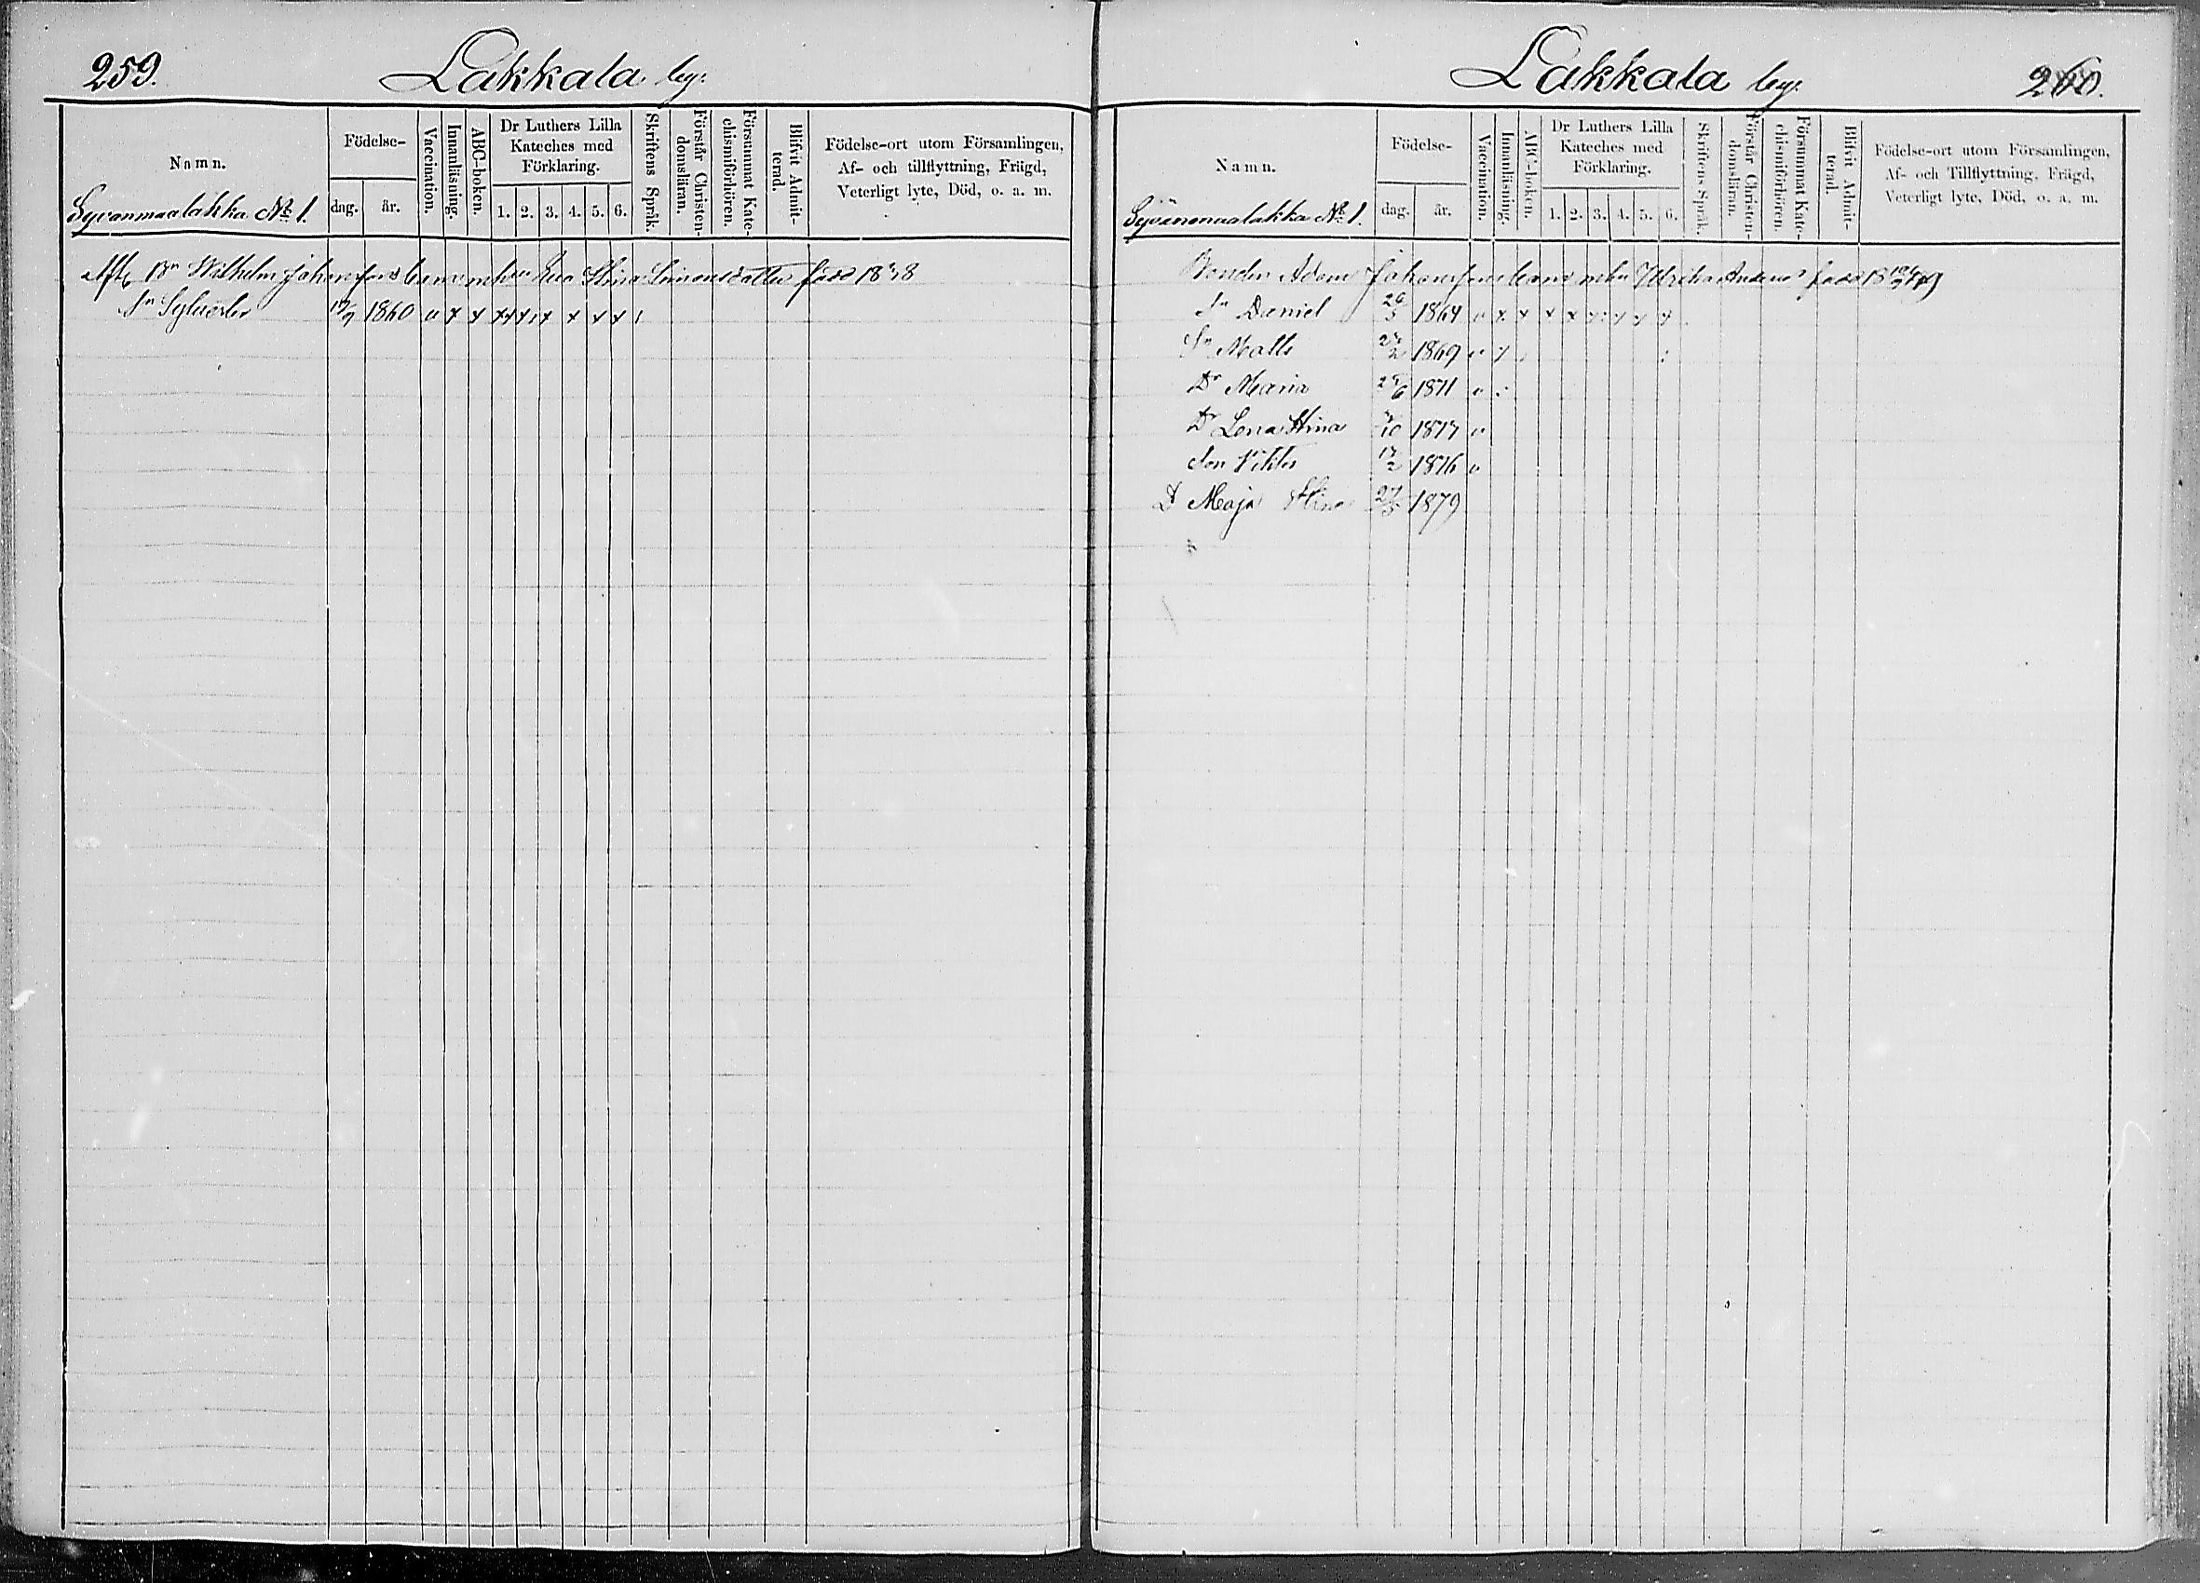 259.
Lakkala by:
Namn.
Födelse-
dag. år.
Vaccination.
Innanläsning.
ABC-boken.
Dr Luthers Lilla
Kateches med
Förklaring.
1. 2. 3. 4. 5. 6.
Skriftens Språk.
Förstår Christen-
domsläran.
Försummat Kate-
chismiförhören.
Blifvit Admit-
terad.
Födelse-ort utom Församlingen,
Af- och tillflyttning, Frägd,
Veterligt lyte, Död, o. a. m.
Syvänmaalakka No 1.
Bn Wilhelm Johansons barn Stina Simonsdatter född 1838
Sn Sylvester 1860 v x x x x x x x x x
Lakkala by:
260.
Namn.
Födelse-
dag. år.
Vaccination.
Innanläsning.
ABC-boken.
Dr Luthers Lilla
Kateches med
Förklaring.
1. 2. 3. 4. 5. 6.
Skriftens Språk.
Förstår Christen-
domsläran.
Försummat Kate-
chismiförhören.
Blifvit Admit-
terad.
Födelse-ort utom Församlingen,
Af- och Tillflyttning, Frägd,
Veterligt lyte, Död, o. a. m.
Syvänmaalakka No 1.
Bonden Adam Johansons barn Ulrika född
Sn Daniel 1864 v x x x x
Sn Matts 1869 v
Dr Maria 1871 v
Dr Lena Stina 1873 v
Son Viktor 17/2 1876 v
D Maja Stina 1879